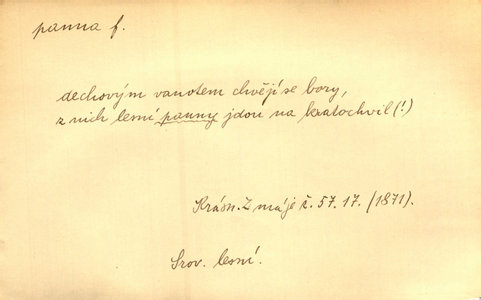 panna f.
dechovým vanotem chvějí se bory,
z nich lesní panny jdou na kratochvil (!)
Krásn. Z máje č. 57. 17. (1871).
Srov. lesní.